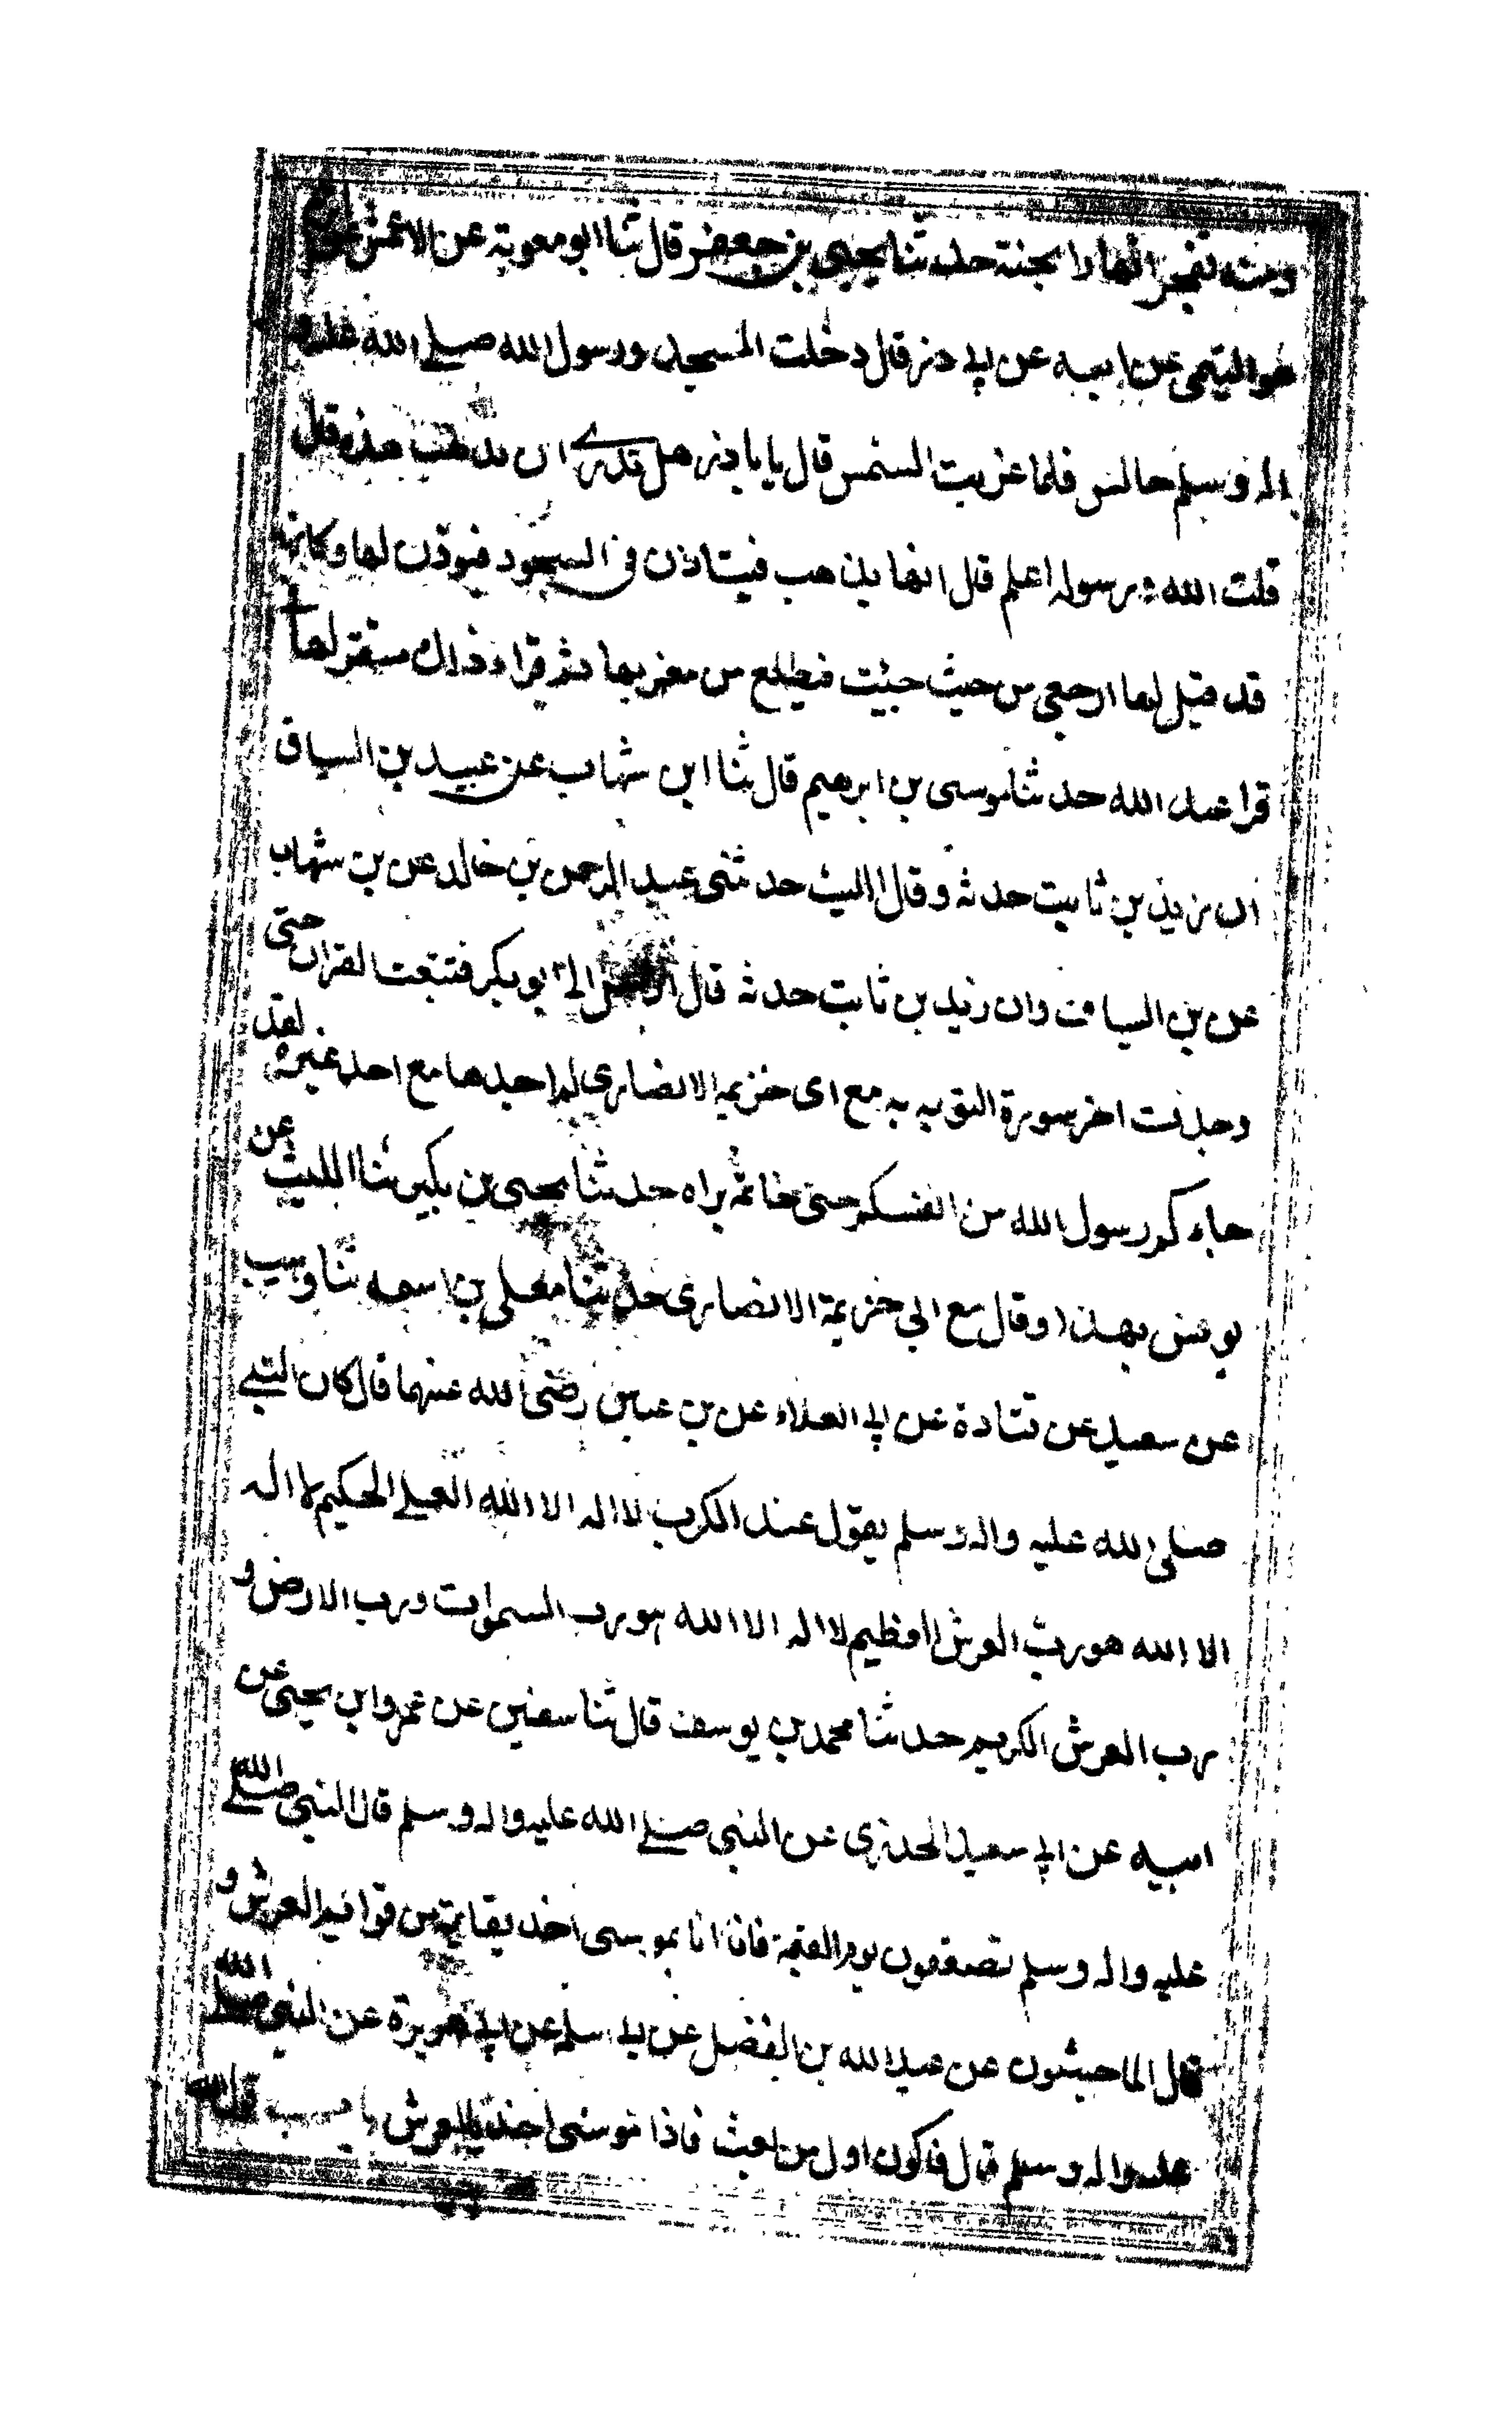 ومنه تفجر انهار الجنة حدثنا يحيى بن جعفر قال ثنا ابو معوية عن الاعمش عن ابراهيم
هو التيمى عن ابيه عن ابى ذر قال دخلت المسجد ورسول الله صلى الله عليه و
اله وسلم جالس فلما غربت الشمس قال يا باذر هل تدرے ان تذهب هذه قال
قلت الله و رسوله اعلم قال انها يذهب فيتاذن فى السجود فيوذن لها وكانها
قد قيل لها ارجعى من حيث جيئت فيطلع من مغربها ثم قراء ذلك مستقر لها
قرا عبد الله حدثنا موسى بن ابرهيم قال ثنا ابن شهاب عن عبيد بن السياق
ان زيد بن ثابت حدثه وقال الليث حدثنى عبد الرحمن بن خالد عن بن شهاب
عن بن السياق وان زيد بن ثابت حدثه قال ارسل الى ابو بكر فتتبعت القران حتى
وجدت اخر سورة التوبيه به مع اى خزيمه الانصارى لم اجدها مع احد غيره لقد
جاءكم رسول الله من انفسكم حتى خاتمه براه حدثنا يحيى بن بكير ثنا الليث عن
يونس بهذا وقال مع ابى خزيمة الانصارى حدثنا معلى بن اسمه ثنا وهيب
عن سعيد عن قتادة عن ابى العلاء عن بن عباس رضى الله عنهما قال كان النبے
صلى الله عليه واله وسلم يقول عند الكرب لا اله الا الله العلے الحكيم لا اله
الا الله هو رب العرش العظيم لا اله الا الله هو رب السموات ورب الارض و
رب العرش الكريم حدثنا محمد بن يوسف قال ثنا سفين عن عمرو ابن يحيى عن
ابيه عن ابى سعيد الخدرى عن النبى صلے الله عليه واله وسلم قال النبى صلے الله
عليه واله وسلم تصعقون يوم القيمة فاذا انا بموسى اخذ بقايمة من قوائيم العرش و
قال الماجشون عن عبد الله بن الفضل عن ابى سلمه عن ابى هريرة عن النبى صلے الله
عليه واله وسلم قال فاكون اول من بعث فاذا موسى اخذ بالعرش باب قول الله